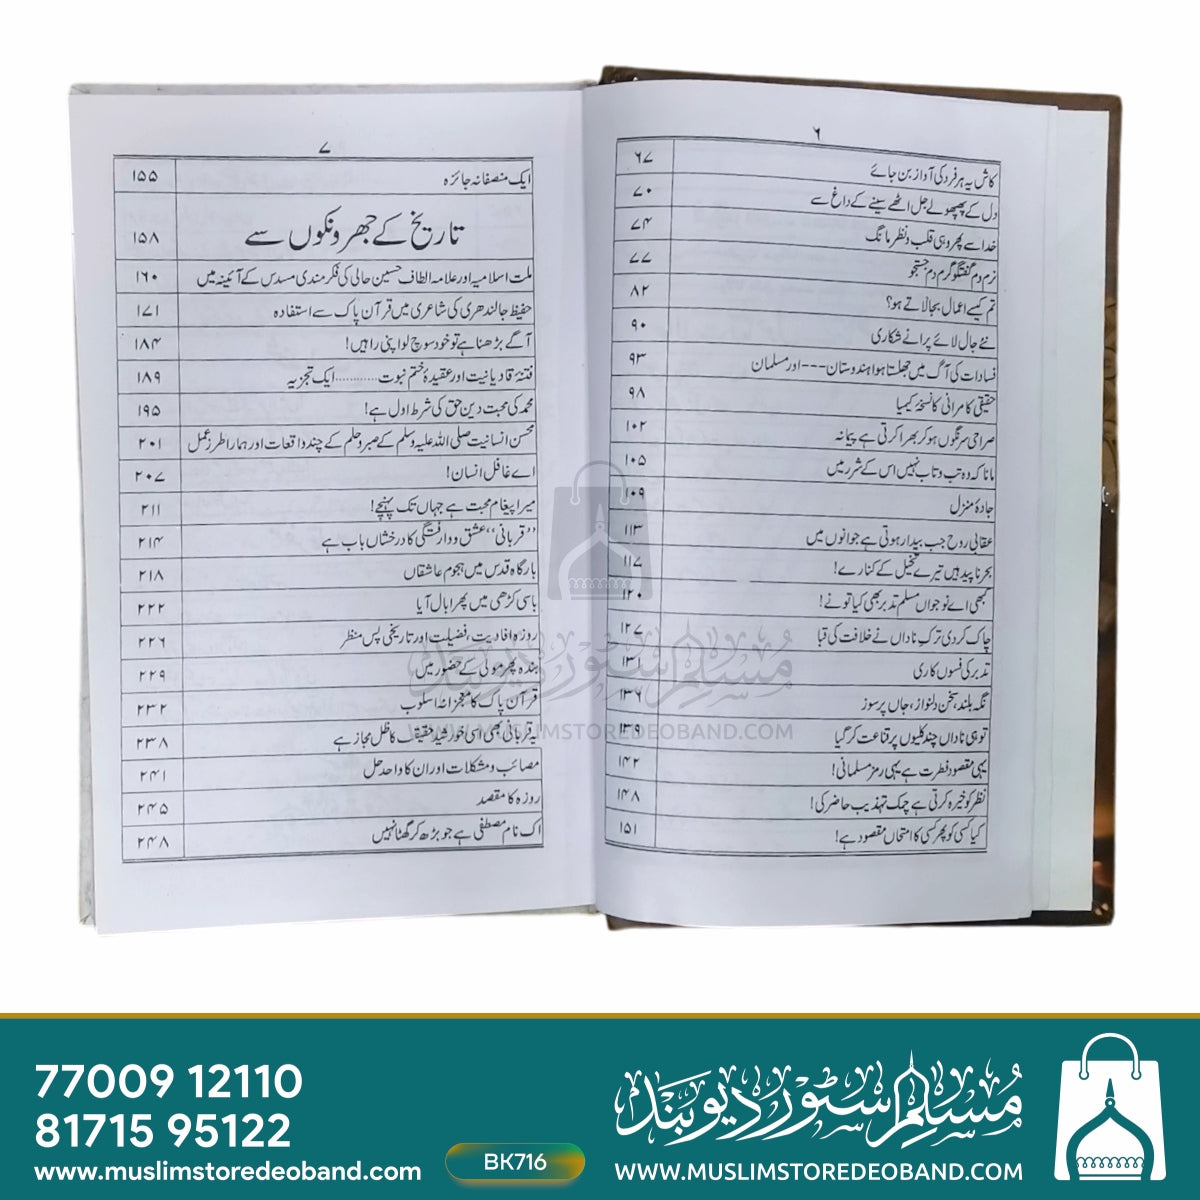 ۶
کاش یہ ہر فرد کی آواز بن جائے ۶۷
دل کے پھپھولے جل اٹھے سینے کے داغ سے ۷۰
خدا سے پھر وہی قلب و نظر مانگ ۷۴
نرم دم گفتگو گرم دم جستجو ۷۷
تم کیسے اعمال بجا لاتے ہو؟ ۸۲
نئے جال لائے پرانے شکاری ۹۰
فسادات کی آگ میں جھلستا ہوا ہندوستان --- اور مسلمان ۹۳
حقیقی کامرانی کا نسخۂ کیمیا ۹۸
صراحی سرنگوں ہو کر بھرا کرتی ہے پیمانہ ۱۰۲
مانا کہ وہ تب و تاب نہیں اس کے شرر میں ۱۰۵
جادۂ منزل ۱۰۹
عقابی روح جب بیدار ہوتی ہے جوانوں میں ۱۱۳
بحر ناپید ہیں تیرے تخیل کے کنارے! ۱۱۷
کبھی اے نوجواں مسلم تدبر بھی کیا تو نے! ۱۲۰
چاک کر دی ترک ناداں نے خلافت کی قبا ۱۲۷
تدبر کی فسوں کاری ۱۳۱
نگہ بلند، سخن دلنواز، جاں پرسوز ۱۳۶
تو ہی ناداں چند کلیوں پر قناعت کر گیا ۱۳۹
یہی مقصود فطرت ہے یہی رمز مسلمانی! ۱۴۲
نظر کو خیرہ کرتی ہے چمک تہذیب حاضر کی! ۱۴۸
کیا کسی کو پھر کسی کا امتحاں مقصود ہے! ۱۵۱
۷
ایک منصفانہ جائزہ ۱۵۵
تاریخ کے جھرونکوں سے ۱۵۸
ملت اسلامیہ اور علامہ الطاف حسین حالی کی فکر مندی مسدس کے آئینہ میں ۱۶۰
حفیظ جالندھری کی شاعری میں قرآن پاک سے استفادہ ۱۷۱
آگے بڑھنا ہے تو خود سوچ لو اپنی راہیں! ۱۸۴
فتنۂ قادیانیت اور عقیدۂ ختم نبوت ............ ایک تجزیہ ۱۸۹
محمد کی محبت دین حق کی شرط اول ہے! ۱۹۵
محسن انسانیت صلی اللہ علیہ وسلم کے صبر و حلم کے چند واقعات اور ہمارا طرز عمل ۲۰۱
اے غافل انسان! ۲۰۷
میرا پیغام محبت ہے جہاں تک پہنچے! ۲۱۱
’’قربانی‘‘ عشق و وارفتگی کا درخشاں باب ہے ۲۱۴
بارگاہ قدس میں ہجوم عاشقاں ۲۱۸
باسی کڑھی میں پھر ابال آیا ۲۲۲
روزہ افادیت، فضیلت اور تاریخی پس منظر ۲۲۶
بندہ پھر مولیٰ کے حضور میں ۲۲۹
قرآن پاک کا معجزانہ اسلوب ۲۳۲
یہ قربانی بھی اسی خورشید حقیقت کا ظل مجاز ہے ۲۳۸
مصائب و مشکلات اور ان کا واحد حل ۲۴۱
روزہ کا مقصد ۲۴۵
اک نام مصطفیٰ ہے جو بڑھ کر گھٹا نہیں ۲۴۸
مسلم سٹور دیوبند
WWW.MUSLIMSTOREDEOBAND.COM
77009 12110
81715 95122
www.muslimstoredeoband.com
BK716
مسلم سٹور دیوبند
WWW.MUSLIMSTOREDEOBAND.COM